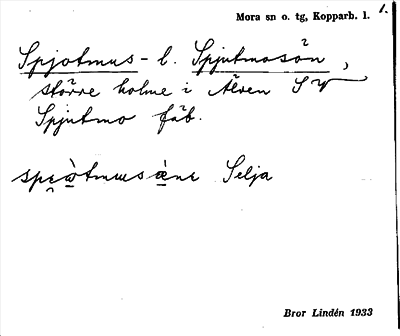 Mora sn o. tg, Kopparb. l. 1.
Spjotmus- l. Spjutmosön,
större holme i Älven SV
Spjutmo fäb.
Selja
Bror Lindén 1933